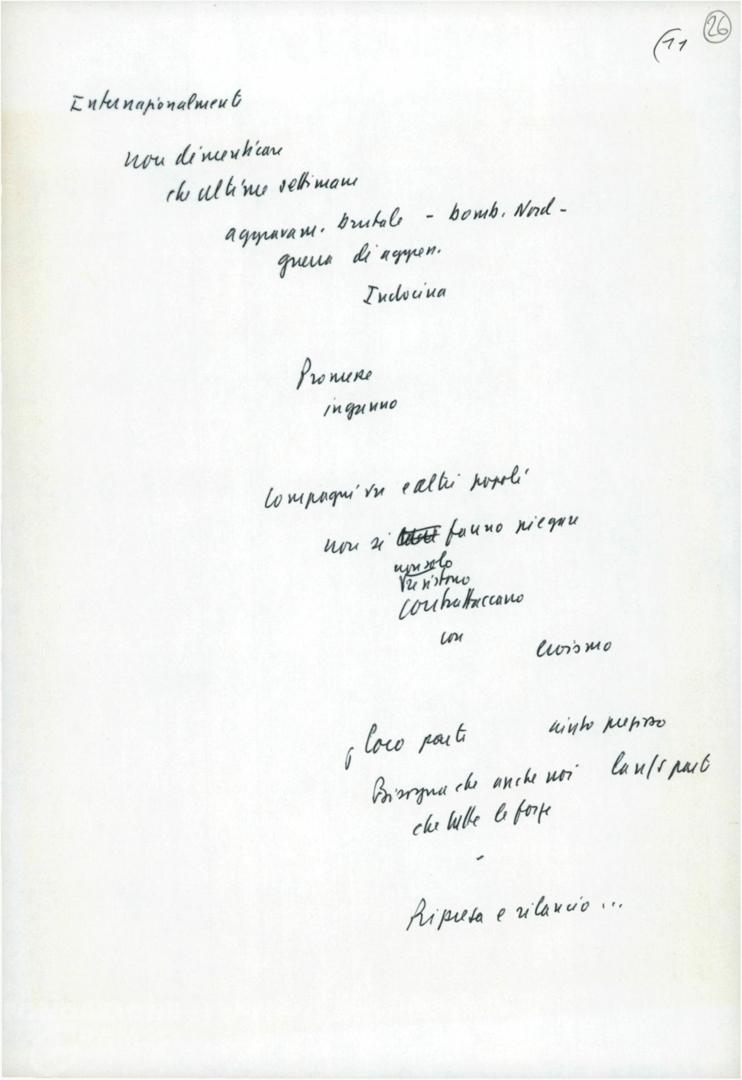 26
(11
Internazionalmente
non dimenticare
che ultime settimane
aggravam. brutale - bomb. Nord -
guerra di aggres.
Indocina
Promesse
inganno
Compagni vn e altri popoli
non si fanno piegare
non solo
resistono
contrattaccano
con eroismo
loro parte aiuto prezioso
Bisogna che anche noi la n/s parte
che tutte le forze
-
Ripresa e rilancio ...